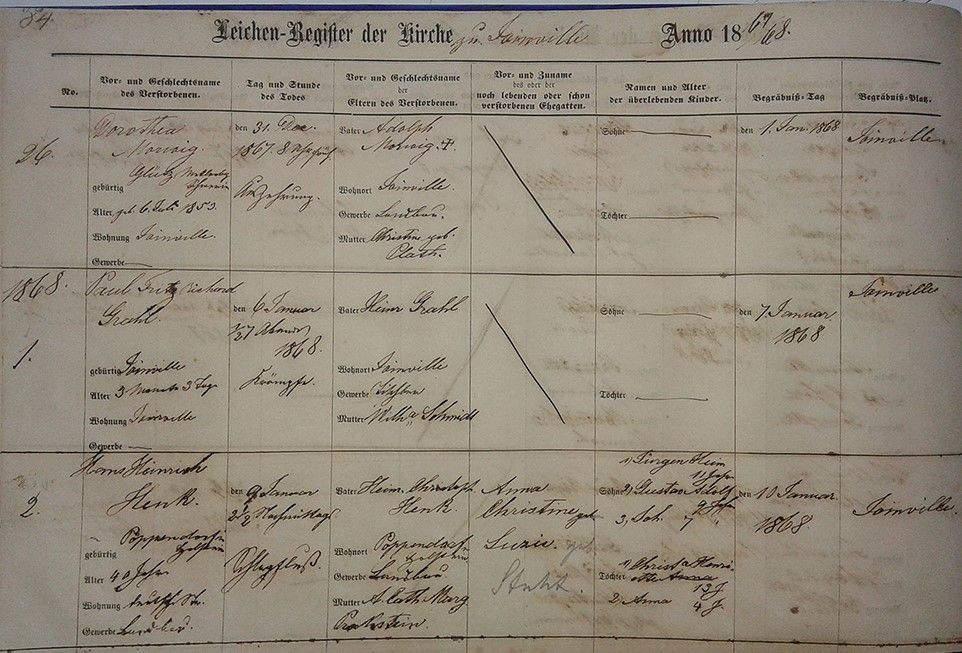 84.
Leichen-Register der Kirche zu Joinville Anno 18 67/68.
No.
Vor- und Geschlechtsname
des Verstorbenen.
Tag und Stunde
des Todes
Vor- und Geschlechtsname
der
Eltern des Verstorbenen.
Vor- und Zuname
des oder der
noch lebenden oder schon
verstorbenen Ehegatten.
Namen und Alter
der überlebenden Kinder.
Begräbniß-Tag
Begräbniß-Platz.
26.
Dorothea
gebürtig
Alter geb. 6. Juli 1853.
Wohnung Joinville.
Gewerbe —
den 31. Dec.
1867. 8 Uhr
Auszehrung.
Vater Adolph
Wohnort Joinville.
Gewerbe Landbau.
Mutter Christine geb.
Plath.
Söhne —
Töchter —
den 1. Jan. 1868
Joinville.
1868.
1.
Paul Fritz Richard
Grahl.
gebürtig Joinville
Alter 3 Monate 3 Tage
Wohnung Joinville
Gewerbe —
den 6 Januar
1/2 7 Abends
1868.
Krämpfe.
Vater Heinr Grahl
Wohnort Joinville
Gewerbe Tischler
Mutter Wilh.a Schmidt
Söhne —
Töchter —
den 7 Januar
1868
Joinville
2.
Hans Heinrich
Henk.
gebürtig Poppendorf in
Holstein
Alter 40 Jahre
Wohnung deutsche Str.
Gewerbe Landbau.
den 9 Januar
2 1/2 Nachmittags
Schlagfluß.
Vater Heinr. Christoph
Henk.
Wohnort Poppendorf in
Holstein
Gewerbe Landbau
Mutter A. Cath. Marg.
Anna
Christine geb.
Luzie. geb.
Söhne 1) Jürgen Heinr
11 Jahre
2) Gustav Adolf
9 Jahre
3, Joh. 7 "
Töchter 1) Christ.a Henri.
Anna
13 J.
2) Anna 4 J.
den 10 Januar
1868.
Joinville.